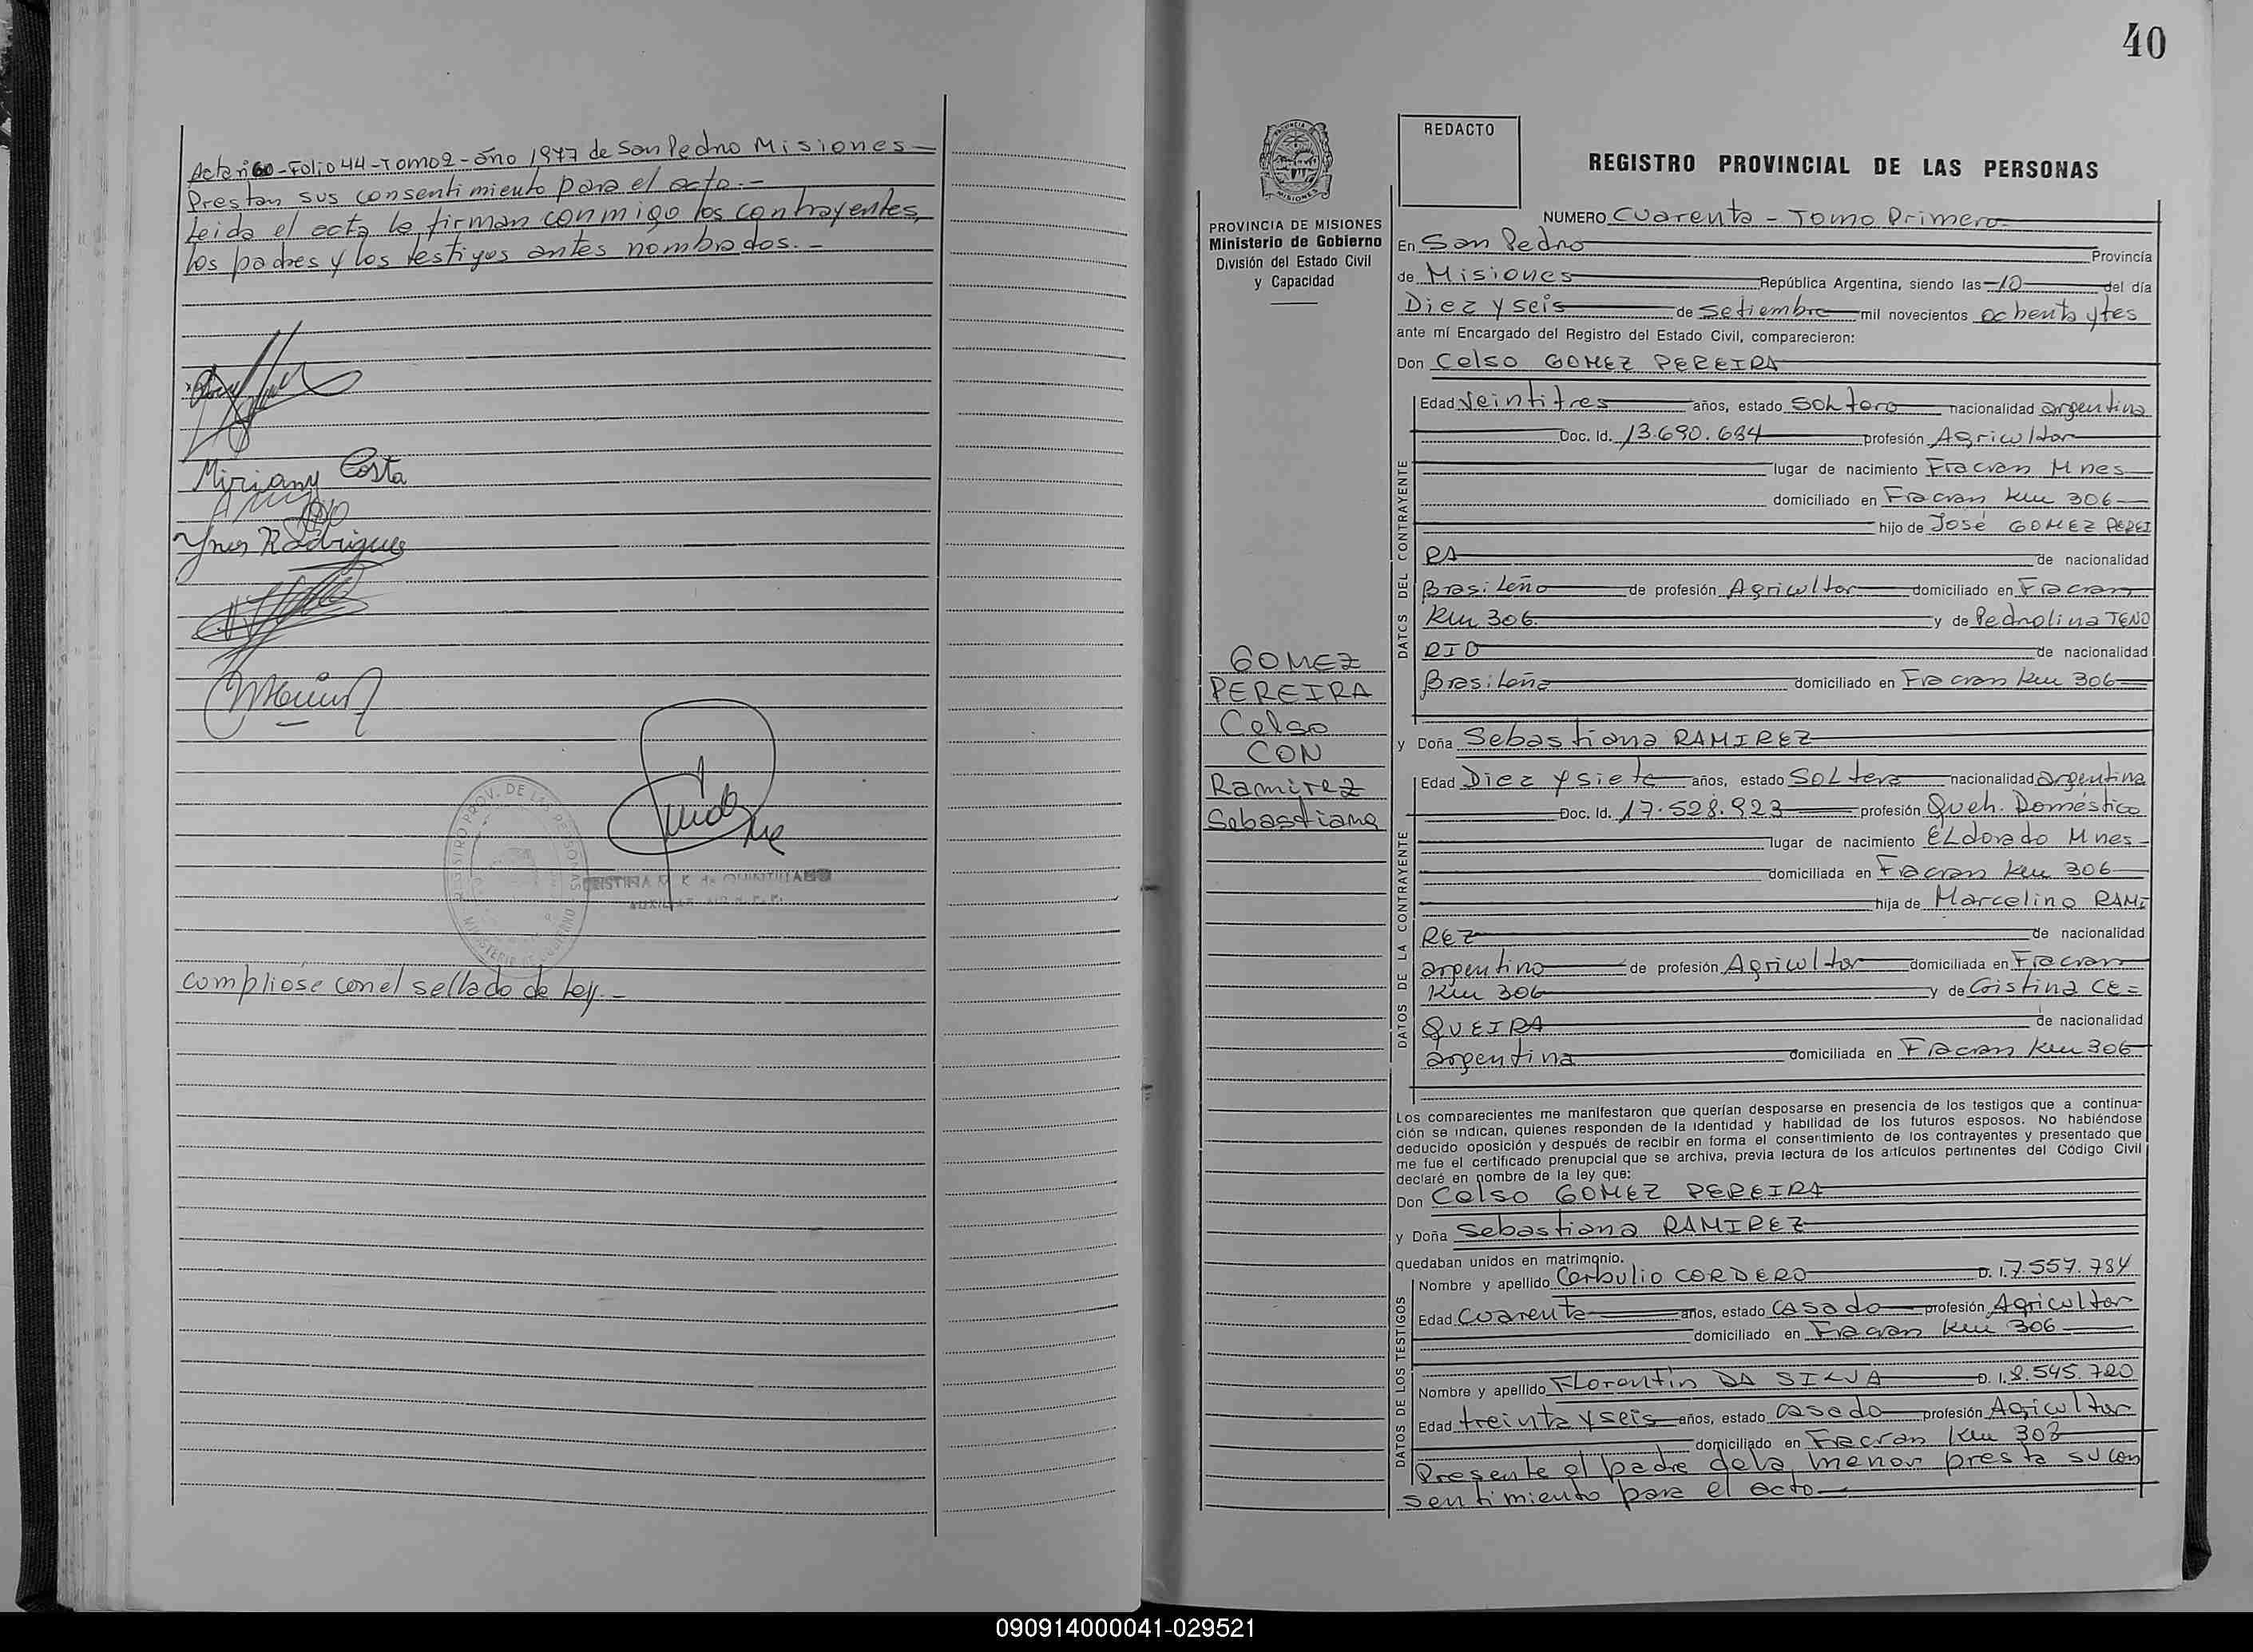 Acta nº 60 - Folio 44 - Tomo 2 - año 1977 de San Pedro Misiones
Prestan sus consentimiento para el acto.-
Leida el acta la firman conmigo los contrayentes,
los padres y los testigos antes nombrados.-
Miriany Costa
Ynes Rodrigues
REGISTRO PROV. DE LAS PERSONAS
MINISTERIO DE GOBIERNO
cumpliose con el sellado de Ley.-
40
PROVINCIA DE MISIONES
Ministerio de Gobierno
División del Estado Civil
y Capacidad
GOMEZ
PEREIRA
Celso
CON
Ramirez
Sebastiana
REDACTO
REGISTRO PROVINCIAL DE LAS PERSONAS
NUMERO Cuarenta - Tomo Primero
En San Pedro Provincia
de Misiones República Argentina, siendo las 10 del día
Diez y seis de Setiembre mil novecientos ochenta y tes
ante mí Encargado del Registro del Estado Civil, comparecieron:
Don Celso GOMEZ PEREIRA
DATOS DEL CONTRAYENTE
Edad Veintitres años, estado SOLtero nacionalidad argentina
Doc. Id. 13.690.684 profesión Agricultor
lugar de nacimiento Fracran Mnes
domiciliado en Fracran Km 306
hijo de José GOMEZ PEREI
RA de nacionalidad
BrasiLeño de profesión Agricultor domiciliado en Fracran
Km 306 y de Pedrolina TENO
RIO de nacionalidad
BrasiLeña domiciliado en Fracran Km 306
y Doña Sebastiana RAMIREZ
DATOS DE LA CONTRAYENTE
Edad Diez y siete años, estado SOLtera nacionalidad argentina
Doc. Id. 17.528.923 profesión Queh. Doméstico
lugar de nacimiento ELdorado Mnes
domiciliada en Fracran Km 306
hija de Marcelino RAMI
REZ de nacionalidad
argentino de profesión Agricultor domiciliada en Fracran
Km 306 y de Cristina CE=
QUEIRA de nacionalidad
argentina domiciliada en Fracran Km 306
Los comparecientes me manifestaron que querían desposarse en presencia de los testigos que a continua-
ción se indican, quienes responden de la identidad y habilidad de los futuros esposos. No habiéndose
deducido oposición y después de recibir en forma el consentimiento de los contrayentes y presentado que
me fue el certificado prenupcial que se archiva, previa lectura de los artículos pertinentes del Código Civil
declaré en nombre de la ley que:
Don Celso GOMEZ PEREIRA
y Doña Sebastiana RAMIREZ
quedaban unidos en matrimonio.
DATOS DE LOS TESTIGOS
Nombre y apellido Corbulio CORDERO D. I. 7.557.784
Edad Cuarenta años, estado casado profesión Agricultor
domiciliado en Fracran Km 306
Nombre y apellido FLorentin DA SILVA D. I. 8.545.720
Edad treinta y seis años, estado casado profesión Agricultor
domiciliado en Fracran Km 308
Presente el padre de la menor presta su con
sentimiento para el acto
090914000041-029521